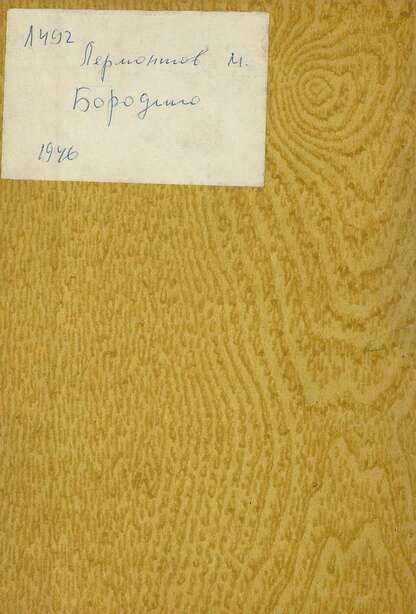 1492
Лермонтов М.
Бородино
1946